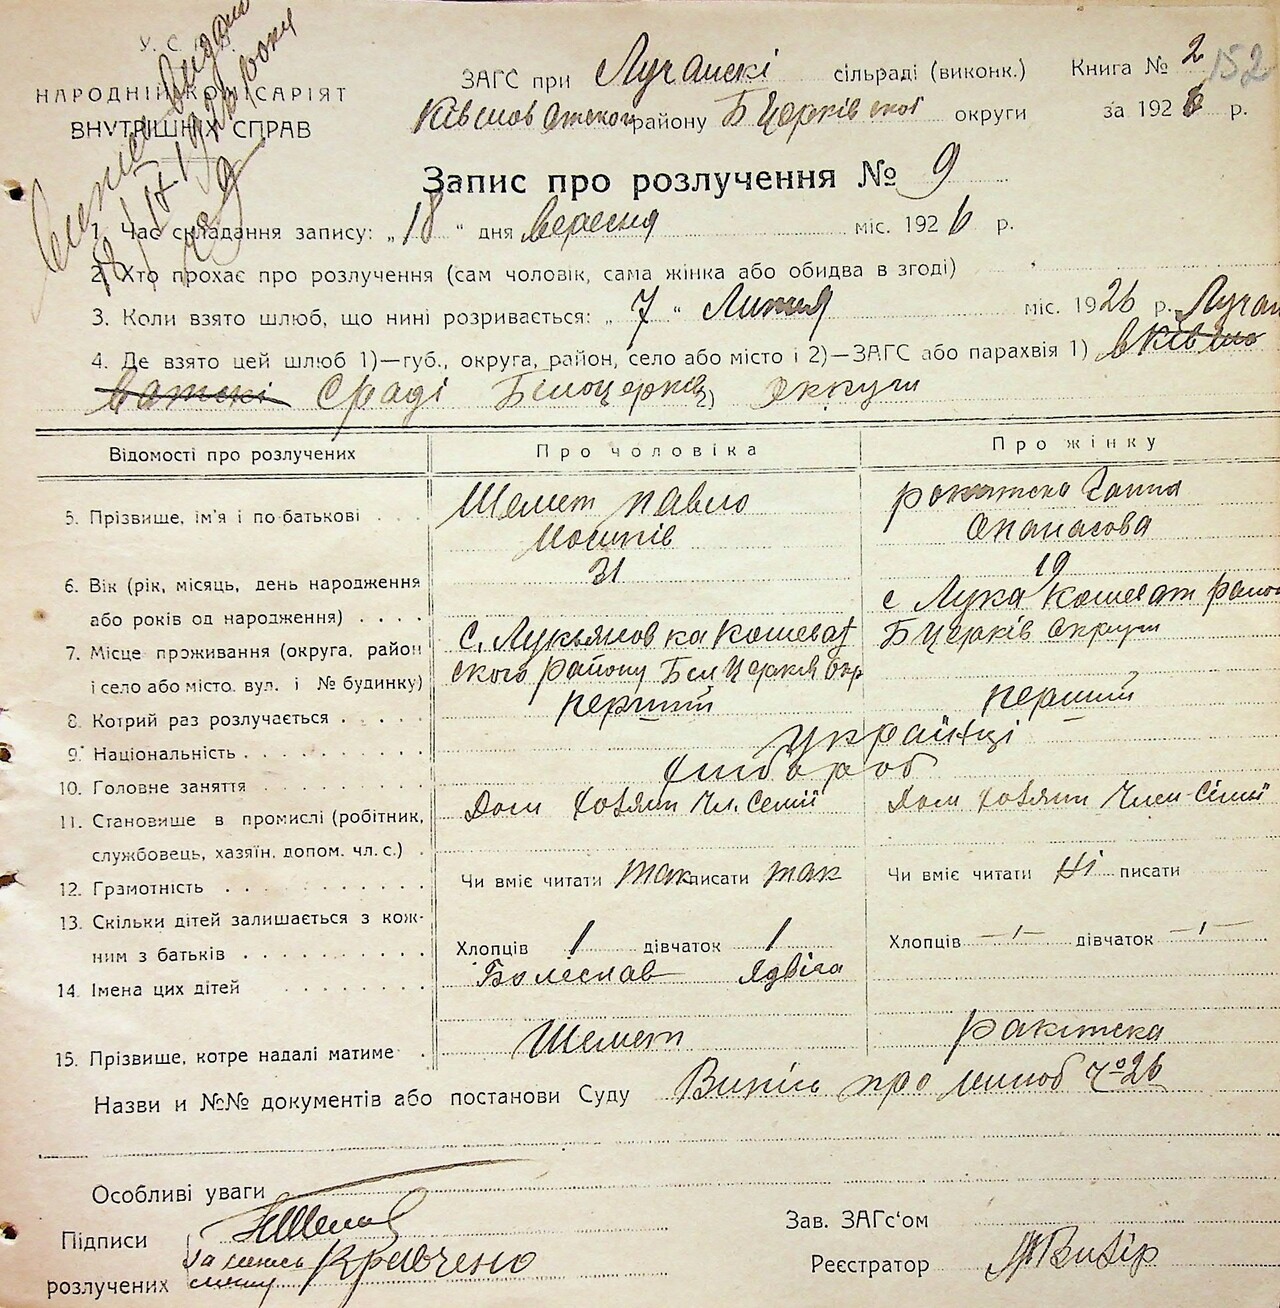 У. С. Р. Р.
НАРОДНІЙ КОМІСАРІЯТ
ВНУТРІШНІХ СПРАВ
18/IX 1926 року
ЗАГС при Лучанскі сільраді (виконк.) Книга № 2 152
району Б Церківскої округи за 1926 р.
Запис про розлучення № 9
1. Час складання запису: „18“ дня вересня міс. 1926 р.
2. Хто прохає про розлучення (сам чоловік, сама жінка або обидва в згоді)
3. Коли взято шлюб, що нині розривається: „7“ Липня міс. 1926 р. Лучан
4. Де взято цей шлюб 1)—губ., округа, район, село або місто і 2)—ЗАГС або парахвія 1)
Сраді Білоцерків 2) Округи
Відомості про розлучених Про чоловіка Про жінку
5. Прізвище, ім'я і по-батькові Шемет Павло Ракитска Ганна
Йосипів Опанасова
6. Вік (рік, місяць, день народження 31 19
або років од народження)
с Лука Кошеват район
7. Місце проживання (округа, район с. Лукьяновка Кошеват Б Церків Округи
і село або місто. вул. і № будинку) ского району Біл Церків окр
8. Котрий раз розлучається перший перший
9. Національність Українці
10. Головне заняття хлібороб
11. Становище в промислі (робітник, Дом хазяїн Чл. Семії Дом хазяїн Член Сімії
службовець, хазяїн, допом. чл. с.)
12. Грамотність Чи вміє читати так писати так Чи вміє читати Ні писати
13. Скільки дітей залишається з кож-
ним з батьків Хлопців 1 дівчаток 1 Хлопців — дівчаток —
14. Імена цих дітей Болеслав Ядвіга
15. Прізвище, котре надалі матиме Шемет Ракитска
Назви и №№ документів або постанови Суду Випісь про шлюб Ч° 26
Особливі уваги
Підписи
розлучених Кравченко
Зав. ЗАГс'ом
Реєстратор